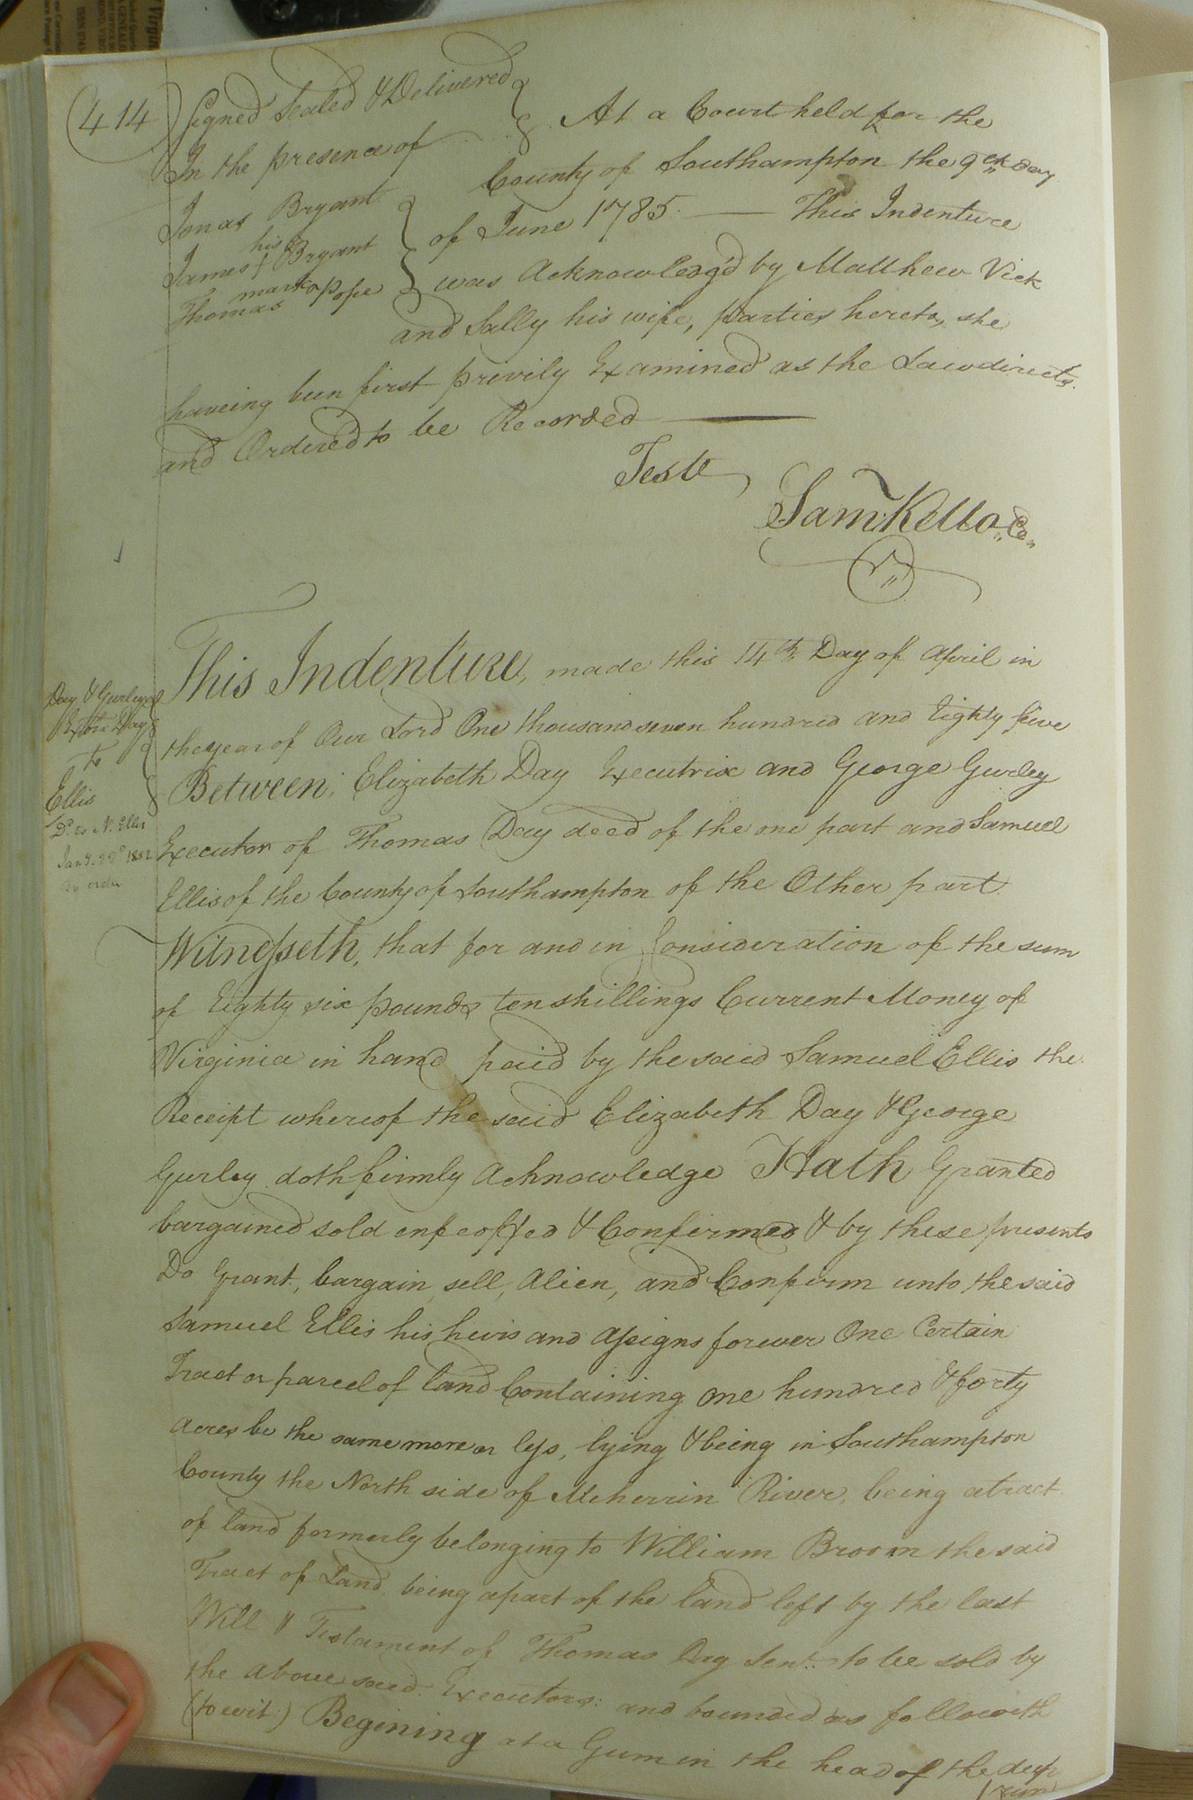 414
Signed Sealed & Delivered
In the presence of
Jonas Bryant
his
James + Bryant
mark
Thomas Pope
At a Court held for the
County of Southampton the 9th day
of June 1785. — This Indenture
was Acknowledg'd by Matthew Vick
and Sally his wife, parties hereto, she
haveing been first privily Examined as the Law directs.
and Ordered to be Recorded —
Teste
Saml Kello Co
Day & Gurley
Extrs Day
to
Ellis
Do to N. Ellis
by order
This Indenture, made this 14th Day of April in
the year of Our Lord One thousand seven hundred and Eighty five
Between: Elizabeth Day Executrix and George Gurley
Executor of Thomas Day decd of the one part and Samuel
Ellis of the County of Southampton of the Other part
Witnesseth, that for and in Consideration of the sum
of Eighty six pounds ten shillings Current Money of
Virginia in hand paid by the said Samuel Ellis the
Receipt whereof the said Elizabeth Day & George
Gurley doth firmly Acknowledge Hath Granted
bargained sold enfeoffed & Confirmed & by these presents
Do Grant, bargain, sell, Alien, and Confirm unto the said
Samuel Ellis his heirs and Assigns forever One Certain
Tract or parcel of land Containing one hundred & forty
acres be the same more or less, lying & being in Southampton
County the North side of Meherrin River, being a tract
of land formerly belonging to William Broom the said
Tract of Land being a part of the land left by the last
Will & Testament of Thomas Day Senr. to be sold by
the above said Executors: and bounded as followith
(to wit:) Begining at a Gum in the head of the deep
run